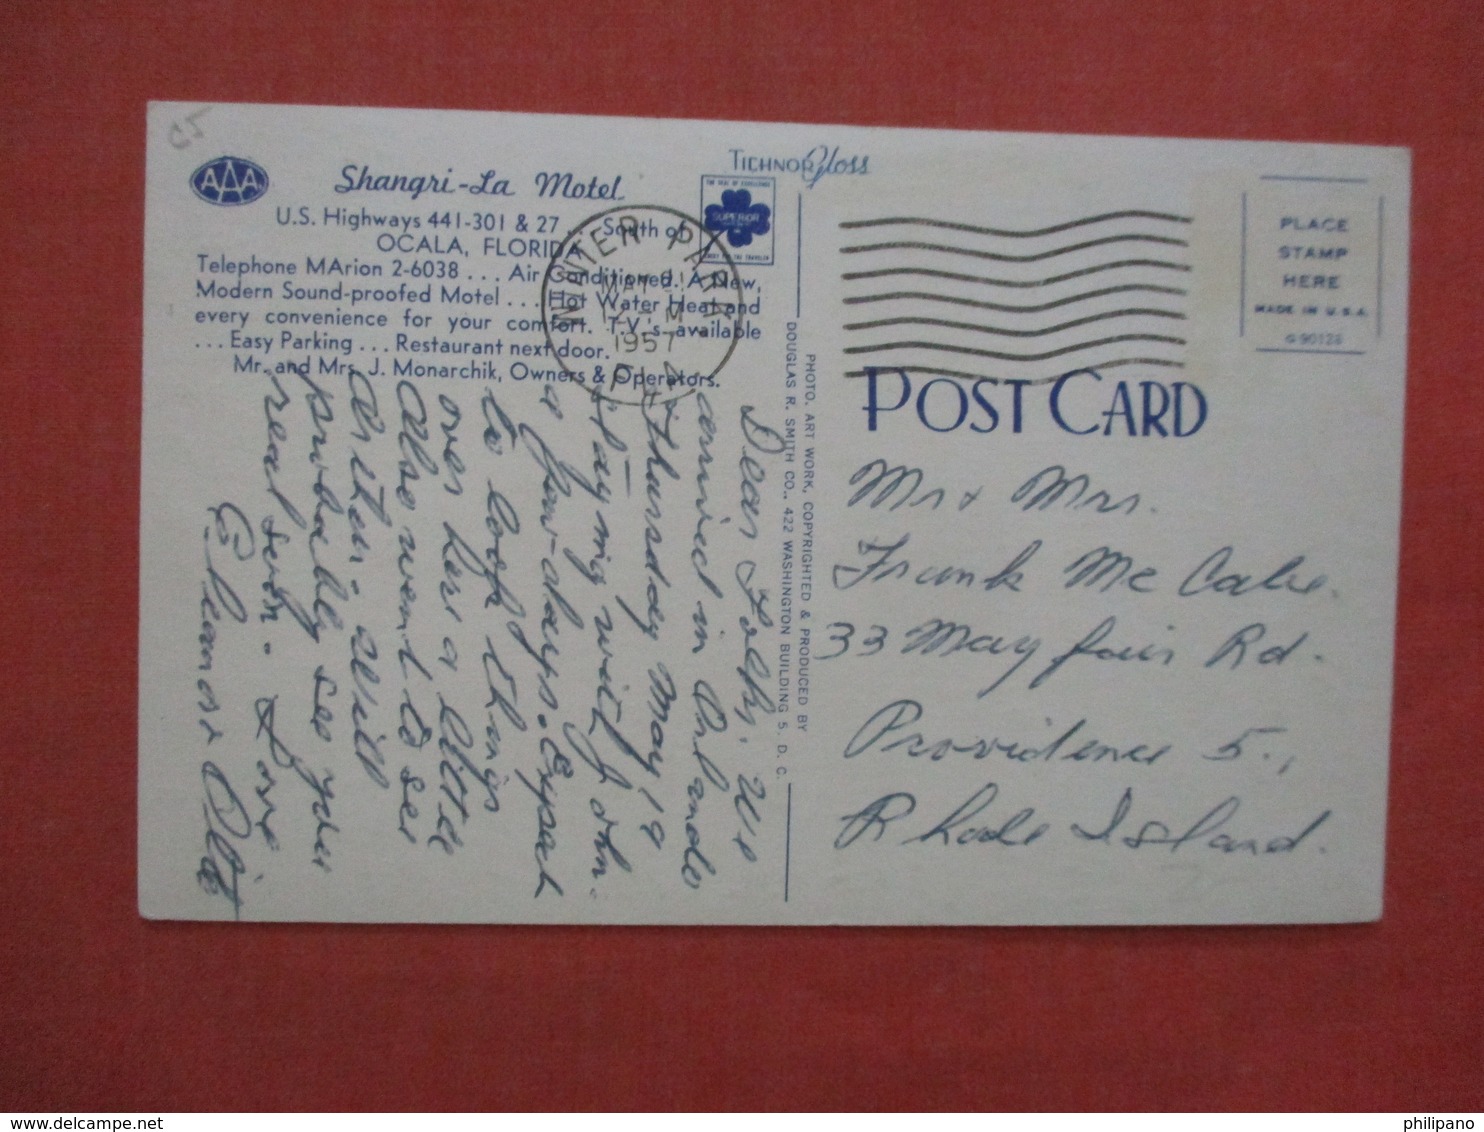 C5
AAA
Shangri-La Motel
U.S. Highways 441-301 & 27 South of
OCALA, FLORIDA
Telephone MArion 2-6038 . . . Air Conditioned. A New,
Modern Sound-proofed Motel . . . Hot Water Heat and
every convenience for your comfort. T.V.'s available
. . . Easy Parking . . . Restaurant next door.
Mr. and Mrs. J. Monarchik, Owners & Operators.
TICHNOR Gloss
SUPERIOR
WINTER PARK
MAY
M
1957
Dear Folks, We
arrived in Orlando
Thursday May 19
staying with John.
a few days. Expect
to look things
over here a little
Also want to see
Arthur. Will
probably see you
real soon. Love
Eleanor
PHOTO, ART WORK, COPYRIGHTED & PRODUCED BY
DOUGLAS R. SMITH CO., 422 WASHINGTON BUILDING 5, D. C.
PLACE
STAMP
HERE
MADE IN U.S.A.
POST CARD
Mr & Mrs.
Frank Mc Cabe.
33 Mayfair Rd.
Providence 5.,
Rhode Island.
philipano